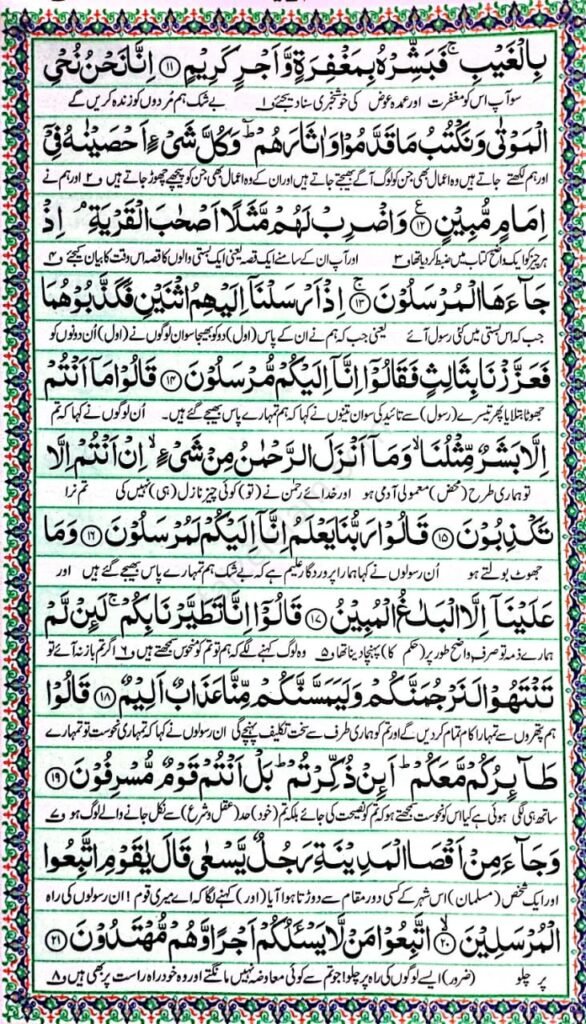 بِالْغَيْبِ ۚ فَبَشِّرْهُ بِمَغْفِرَةٍ وَّاَجْرٍ كَرِيْمٍ ﴿۱۱﴾ اِنَّا نَحْنُ نُحْيِ
سو آپ اس کو مغفرت اور عمدہ عوض کی خوشخبری سنا دیجئے ۱ بے شک ہم مُردوں کو زندہ کریں گے
الْمَوْتٰى وَنَكْتُبُ مَا قَدَّمُوْا وَاٰثَارَهُمْ ؕ وَكُلَّ شَيْءٍ اَحْصَيْنٰهُ فِيْۤ
اور ہم لکھتے جاتے ہیں وہ اعمال بھی جن کو لوگ آگے بھیجتے جاتے ہیں اور ان کے وہ اعمال بھی جن کو پیچھے چھوڑ جاتے ہیں ۲ اور ہم نے
اِمَامٍ مُّبِيْنٍ ﴿۱۲﴾ ع وَاضْرِبْ لَهُمْ مَّثَلًا اَصْحٰبَ الْقَرْيَةِ ۘ اِذْ
ہر چیز کو ایک واضح کتاب میں ضبط کر دیا تھا ۳ اور آپ ان کے سامنے ایک قصہ یعنی ایک بستی والوں کا قصہ اس وقت کا بیان کیجئے ۴
جَآءَهَا الْمُرْسَلُوْنَ ﴿۱۳﴾ ۚ اِذْ اَرْسَلْنَاۤ اِلَيْهِمُ اثْنَيْنِ فَكَذَّبُوْهُمَا
جب کہ اس بستی میں کئی رسول آئے یعنی جب کہ ہم نے ان کے پاس (اول) دو کو بھیجا سو ان لوگوں نے (اول) اُن دونوں کو
فَعَزَّزْنَا بِثَالِثٍ فَقَالُوْۤا اِنَّاۤ اِلَيْكُمْ مُّرْسَلُوْنَ ﴿۱۴﴾ قَالُوْا مَاۤ اَنْتُمْ
جھوٹا بتلایا پھر تیسرے (رسول) سے تائید کی سو ان تینوں نے کہا کہ ہم تمہارے پاس بھیجے گئے ہیں۔ اُن لوگوں نے کہا کہ تم
اِلَّا بَشَرٌ مِّثْلُنَا ۙ وَمَاۤ اَنْزَلَ الرَّحْمٰنُ مِنْ شَيْءٍ ۙ اِنْ اَنْتُمْ اِلَّا
تو ہماری طرح (محض) معمولی آدمی ہو اور خدائے رحمٰن نے (تو) کوئی چیز نازل (ہی) نہیں کی تم نرا
تَكْذِبُوْنَ ﴿۱۵﴾ قَالُوْا رَبُّنَا يَعْلَمُ اِنَّاۤ اِلَيْكُمْ لَمُرْسَلُوْنَ ﴿۱۶﴾ وَمَا
جھوٹ بولتے ہو اُن رسولوں نے کہا ہمارا پروردگار علیم ہے کہ بے شک ہم تمہارے پاس بھیجے گئے ہیں اور
عَلَيْنَاۤ اِلَّا الْبَلٰغُ الْمُبِيْنُ ﴿۱۷﴾ قَالُوْۤا اِنَّا تَطَيَّرْنَا بِكُمْ ۚ لَئِنْ لَّمْ
ہمارے ذمہ تو صرف واضح طور پر (حکم کا) پہنچا دینا تھا ۵ وہ لوگ کہنے لگے کہ ہم تو تم کو منحوس سمجھتے ہیں ۶ اگر تم باز نہ آئے تو
تَنْتَهُوْا لَنَرْجُمَنَّكُمْ وَلَيَمَسَّنَّكُمْ مِّنَّا عَذَابٌ اَلِيْمٌ ﴿۱۸﴾ قَالُوْا
ہم پتھروں سے تمہارا کام تمام کر دیں گے اور تم کو ہماری طرف سے سخت تکلیف پہنچے گی ان رسولوں نے کہا کہ تمہاری نحوست تو تمہارے
طَآئِرُكُمْ مَّعَكُمْ ؕ اَئِنْ ذُكِّرْتُمْ ؕ بَلْ اَنْتُمْ قَوْمٌ مُّسْرِفُوْنَ ﴿۱۹﴾
ساتھ ہی لگی ہوئی ہے کیا اس کو نحوست سمجھتے ہو کہ تم کو نصیحت کی جائے بلکہ تم (خود) حد (عقل و شرع) سے نکل جانے والے لوگ ہو ۷
وَجَآءَ مِنْ اَقْصَا الْمَدِيْنَةِ رَجُلٌ يَّسْعٰى قَالَ يٰقَوْمِ اتَّبِعُوا
اور ایک شخص (مسلمان) اس شہر کے کسی دور مقام سے دوڑتا ہوا آیا (اور) کہنے لگا کہ اے میری قوم ! ان رسولوں کی راہ
الْمُرْسَلِيْنَ ﴿۲۰﴾ ۙ اتَّبِعُوْا مَنْ لَّا يَسْئَلُكُمْ اَجْرًا وَّهُمْ مُّهْتَدُوْنَ ﴿۲۱﴾
پر چلو (ضرور) ایسے لوگوں کی راہ پر چلو جو تم سے کوئی معاوضہ نہیں مانگتے اور وہ خود راہ راست پر بھی ہیں ۸